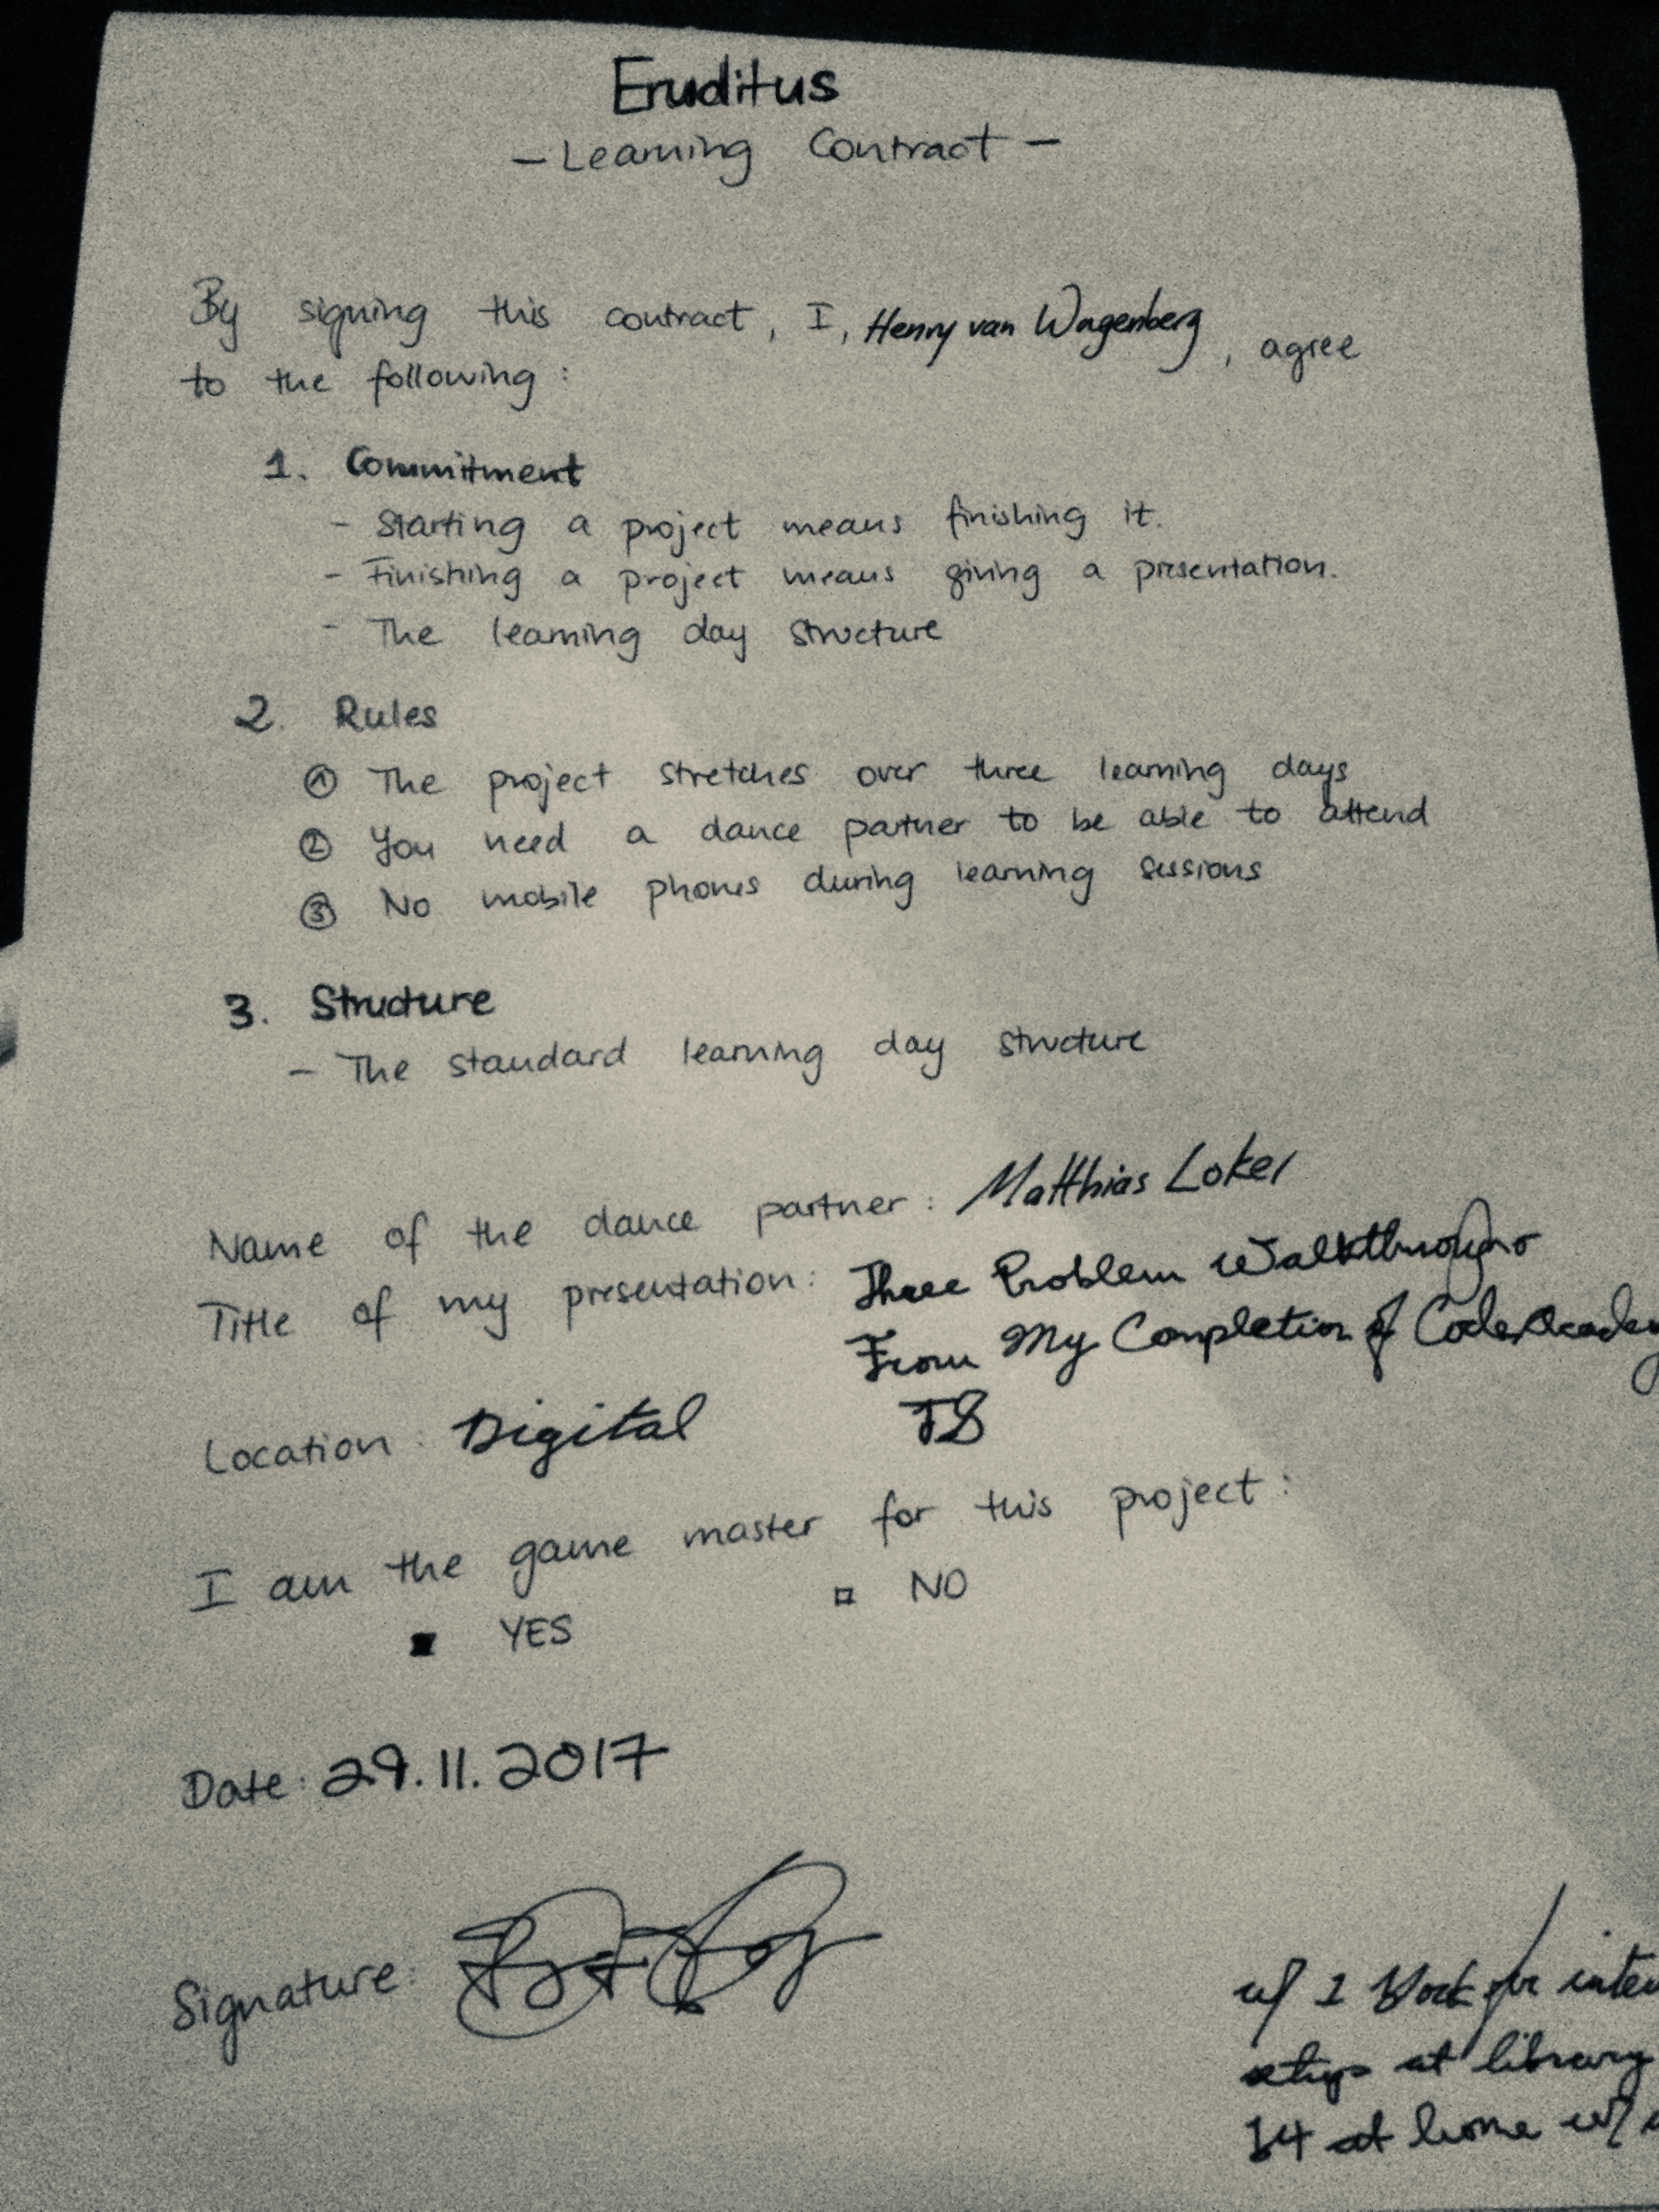 Eruditus
- Learning Contract -
By signing this contract, I, Henry van Wagenberg, agree
to the following:
1. Commitment
- Starting a project means finishing it.
- Finishing a project means giving a presentation.
- The learning day structure
2. Rules
① The project stretches over three learning days
② You need a dance partner to be able to attend
③ No mobile phones during learning sessions
3. Structure
- The standard learning day structure
Name of the dance partner: Matthias Loker
Title of my presentation: Three Problem Walkthroughs
From My Completion of CodeAcademy
Location: Digital
I am the game master for this project:
YES NO
Date: 29.11.2017
Signature:
w/ 1
at library
14 at home w/